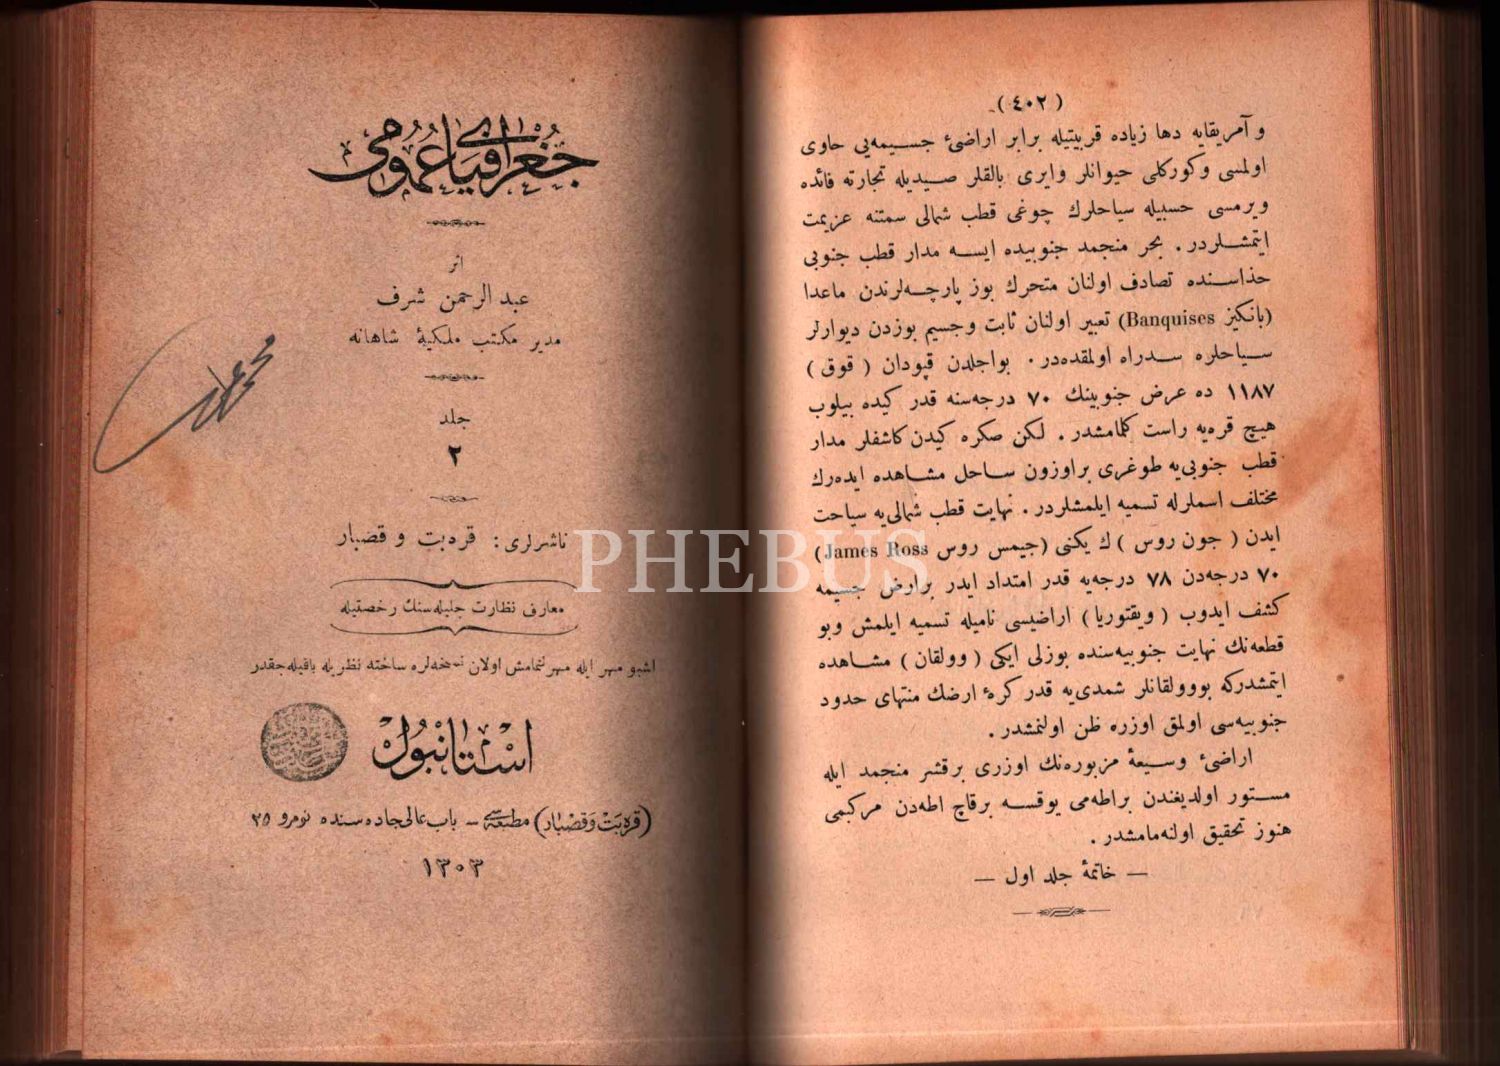 ( ٤٠٢ )
و آمریقایه دها زیاده قربیتیله برابر اراضئ جسیمه‌یی حاوی
اولمسی وکورکلی حیوانلر وایری بالقلر صیدیله تجارته فائده
ویرمسی حسبیله سیاحلرك چوغی قطب شمالی سمتنه عزیمت
ایتمشلردر . بحر منجمد جنوبیده ایسه مدار قطب جنوبی
حذاسنده تصادف اولنان متحرك بوز پارچه‌لرندن ماعدا
(بانکیز Banquises) تعبیر اولنان ثابت وجسیم بوزدن دیوارلر
سیاحلره سدراه اولمقده‌در . بواجلدن قپودان ( قوق )
١١٨٧ ده عرض جنوبینك ٧٠ درجه‌سنه قدر کیده بیلوب
هیچ قره‌یه راست کلمامشدر . لکن صکره کیدن کاشفلر مدار
قطب جنوبی‌یه طوغری براوزون ساحل مشاهده ایده‌رك
مختلف اسملرله تسمیه ایلمشلردر . نهایت قطب شمالی‌یه سیاحت
ایدن ( جون روس ) ك یکنی (جیمس روس James Ross)
٧٠ درجه‌دن ٧٨ درجه‌یه قدر امتداد ایدر برارض جسیمه
کشف ایدوب ( ویقتوریا ) اراضیسی نامیله تسمیه ایلمش وبو
قطعه‌نك نهایت جنوبیه‌سنده بوزلی ایکی ( وولقان ) مشاهده
ایتمشدرکه بووولقانلر شمدی‌یه قدر کرهٔ ارضك منتهای حدود
جنوبیه‌سی اولمق اوزره ظن اولنمشدر .
اراضئ وسیعهٔ مزبوره‌نك اوزری برقشر منجمد ایله
مستور اولدیغندن براطه‌می یوقسه برقاچ اطه‌دن مرکبمی
هنوز تحقیق اولنه‌مامشدر .
— خاتمهٔ جلد اول —
جُغرافیای عُمومی
اثر
عبد الرحمن شرف
مدیر مکتب ملکیهٔ شاهانه
جلد
٢
ناشرلری : قره‌بت و قصبار
معارف نظارت جلیله‌سنك رخصتیله
اشبو مهر ایله مهرلنمامش اولان نسخه‌لره ساخته نظریله باقیله‌جقدر
استانبول
(قره‌بت وقصبار) مطبعه‌سی – باب عالی جاده‌سنده نومرو ٢٥
١٣٠٣
PHEBUS